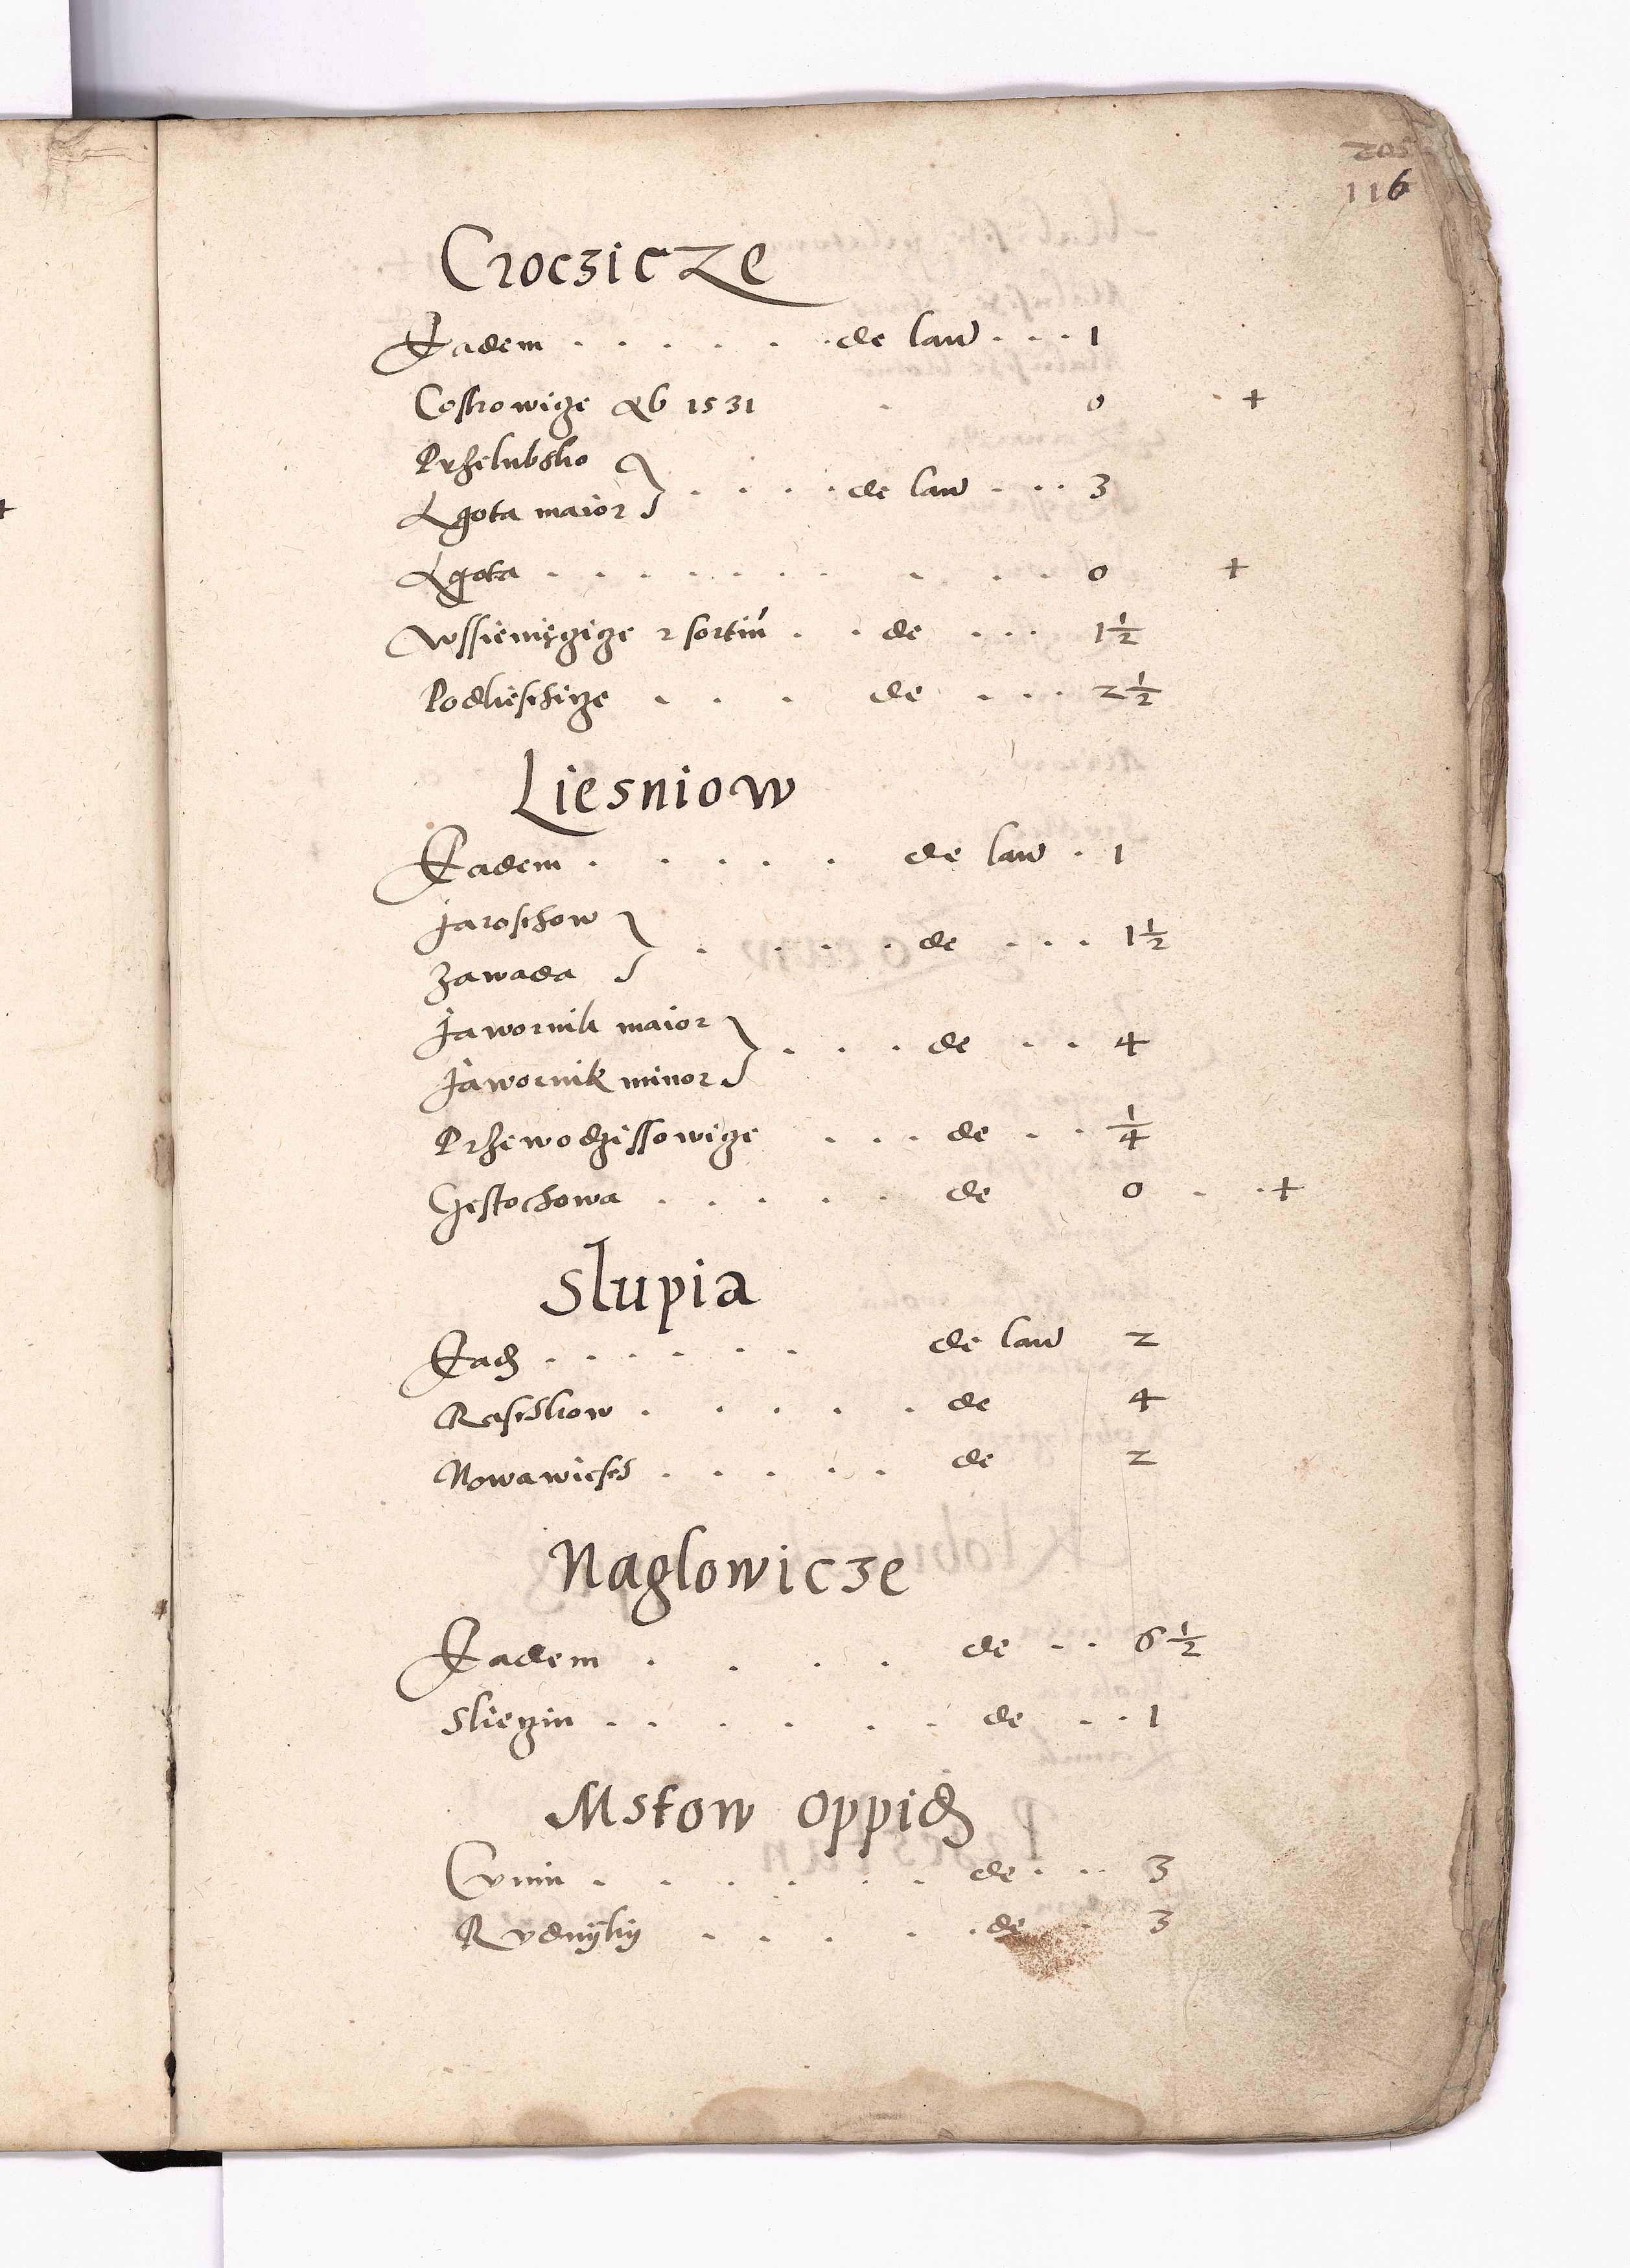 205
116
Croczicze
Eadem . . . . . . de lan̄ . . . 1
Costrowicze ab 1531 . 0 . +
Przelubsko
Lgota maior } . . . . de lan̄ . . . 3
Lgota . . . . . . . . . . 0 +
Wssiemięczicze 2 sortiū . . de . . . 1 1/2
Podlieschicze . . . de . . . 2 1/2
Liesniow
Eadem . . . . . de lan̄ . 1
Jaroschow
Zawada } . . . . de . . . 1 1/2
Jawornik maior
Jawornik minor } . . . de . . 4
Przewodzissowicze . . . de . . 1/4
Czestochowa . . . . . de 0 . . +
Slupia
Ead . . . . . . de lan̄ 2
Raschkow . . . . . de 4
Nowawiesch . . . . . de 2
Naglowicze
Eadem . . . . de . . 6 1/2
Slieczin . . . . . . de . . 1
Mstow oppid
Cunin . . . . . . de . . . 3
Rudnyky . . . . . de . 3